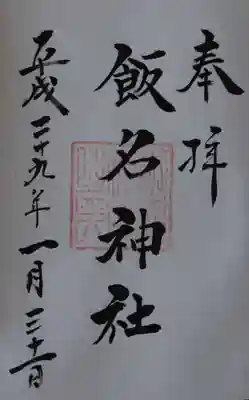 奉拝
飯名神社
平成二十九年一月三十一日